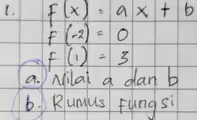 1. F(x) = ax + b
F(-2) = 0
F(1) = 3
a. Nilai a dan b
b. Rumus fungsi